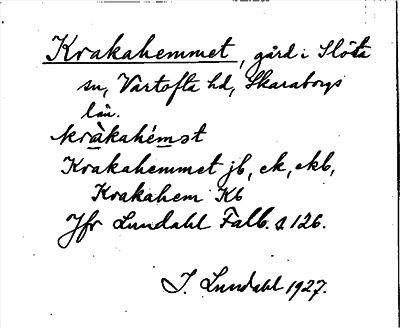 Krakahemmet, gård i Slöta
sn, Vartofta hd, Skaraborgs
län.
kràkahémət
Krakahemmet jb, ek, ekb,
Krakahem Kb
Jfr Lundahl Falb. s 126.
I. Lundahl 1927.